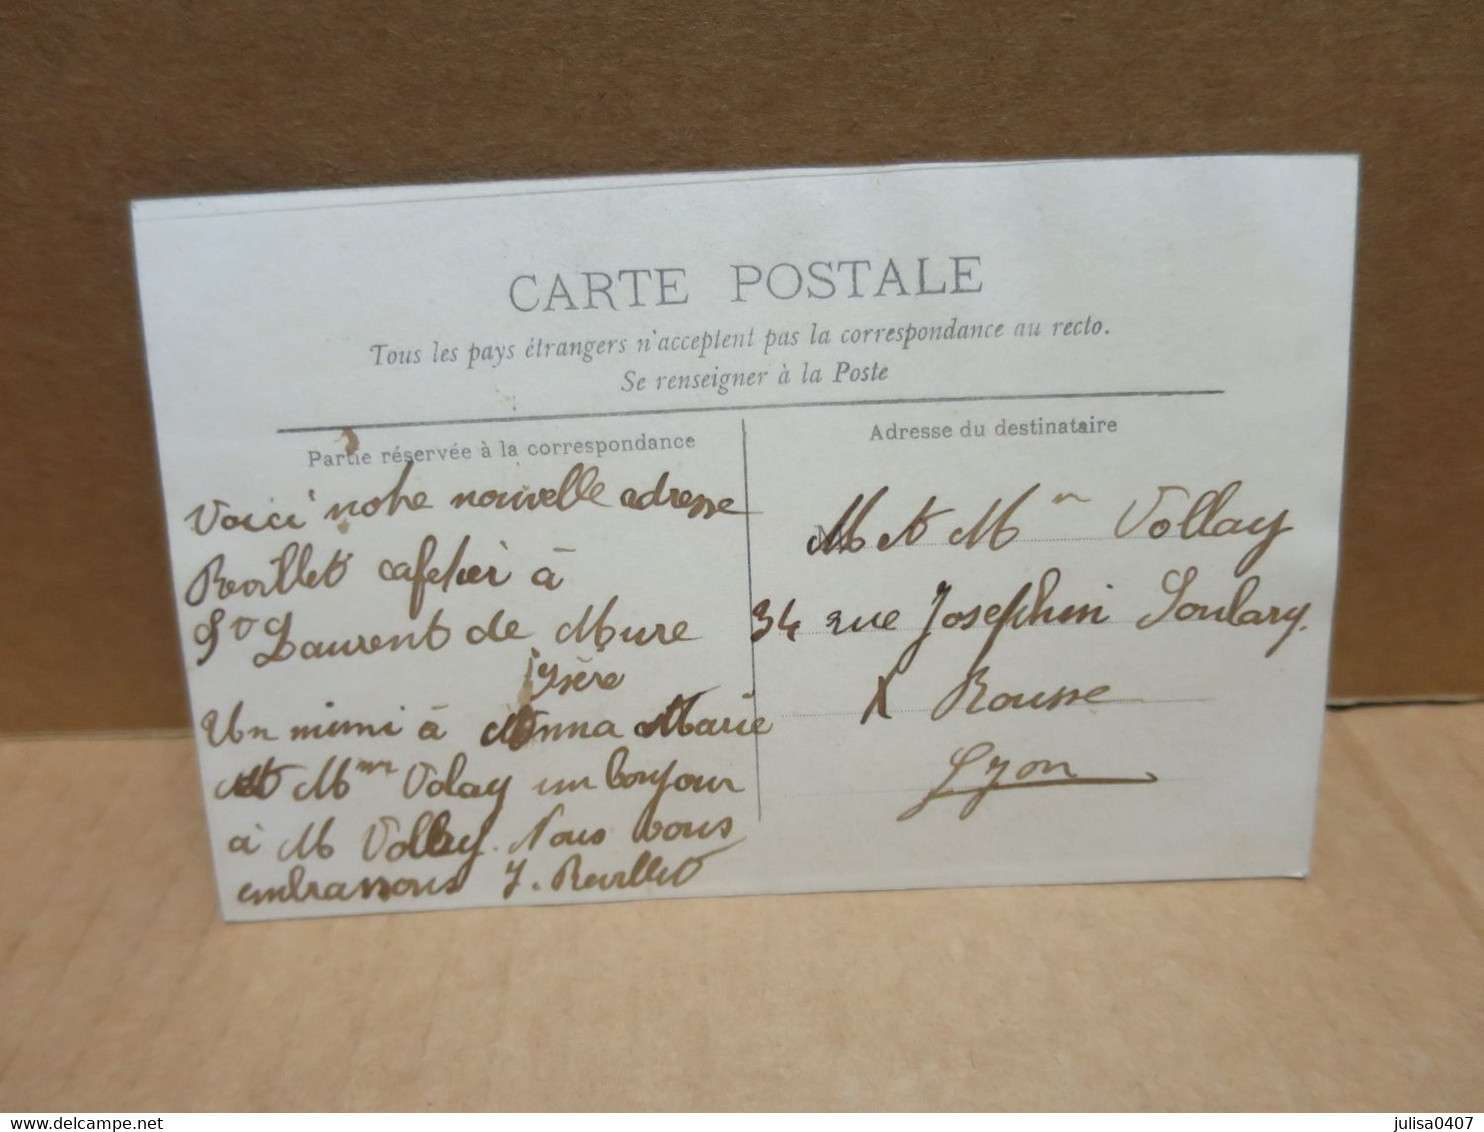 CARTE POSTALE
Tous les pays étrangers n'acceptent pas la correspondance au recto.
Se renseigner à la Poste
Partie réservée à la correspondance
Voici notre nouvelle adresse
Revillet cafetier à
St Laurent de Mure
Isère
Un mimi à Anna Marie
et Mme Volay un bonjour
à M Vollay. Nous vous
embrassons J. Revillet
Adresse du destinataire
M et Mm Vollay
34 rue Josephin Soulary.
X Rousse
Lyon
delcampe.net
julisa0407